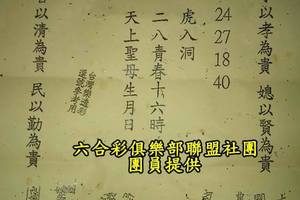 子以孝為貴 媳以賢為貴
24
27
18
40
虎入洞
二八青春十六時
天上聖母生月日
台灣樂透彩
選號參考用
以清為貴 民以勤為貴
六合彩俱樂部聯盟社團
團員提供